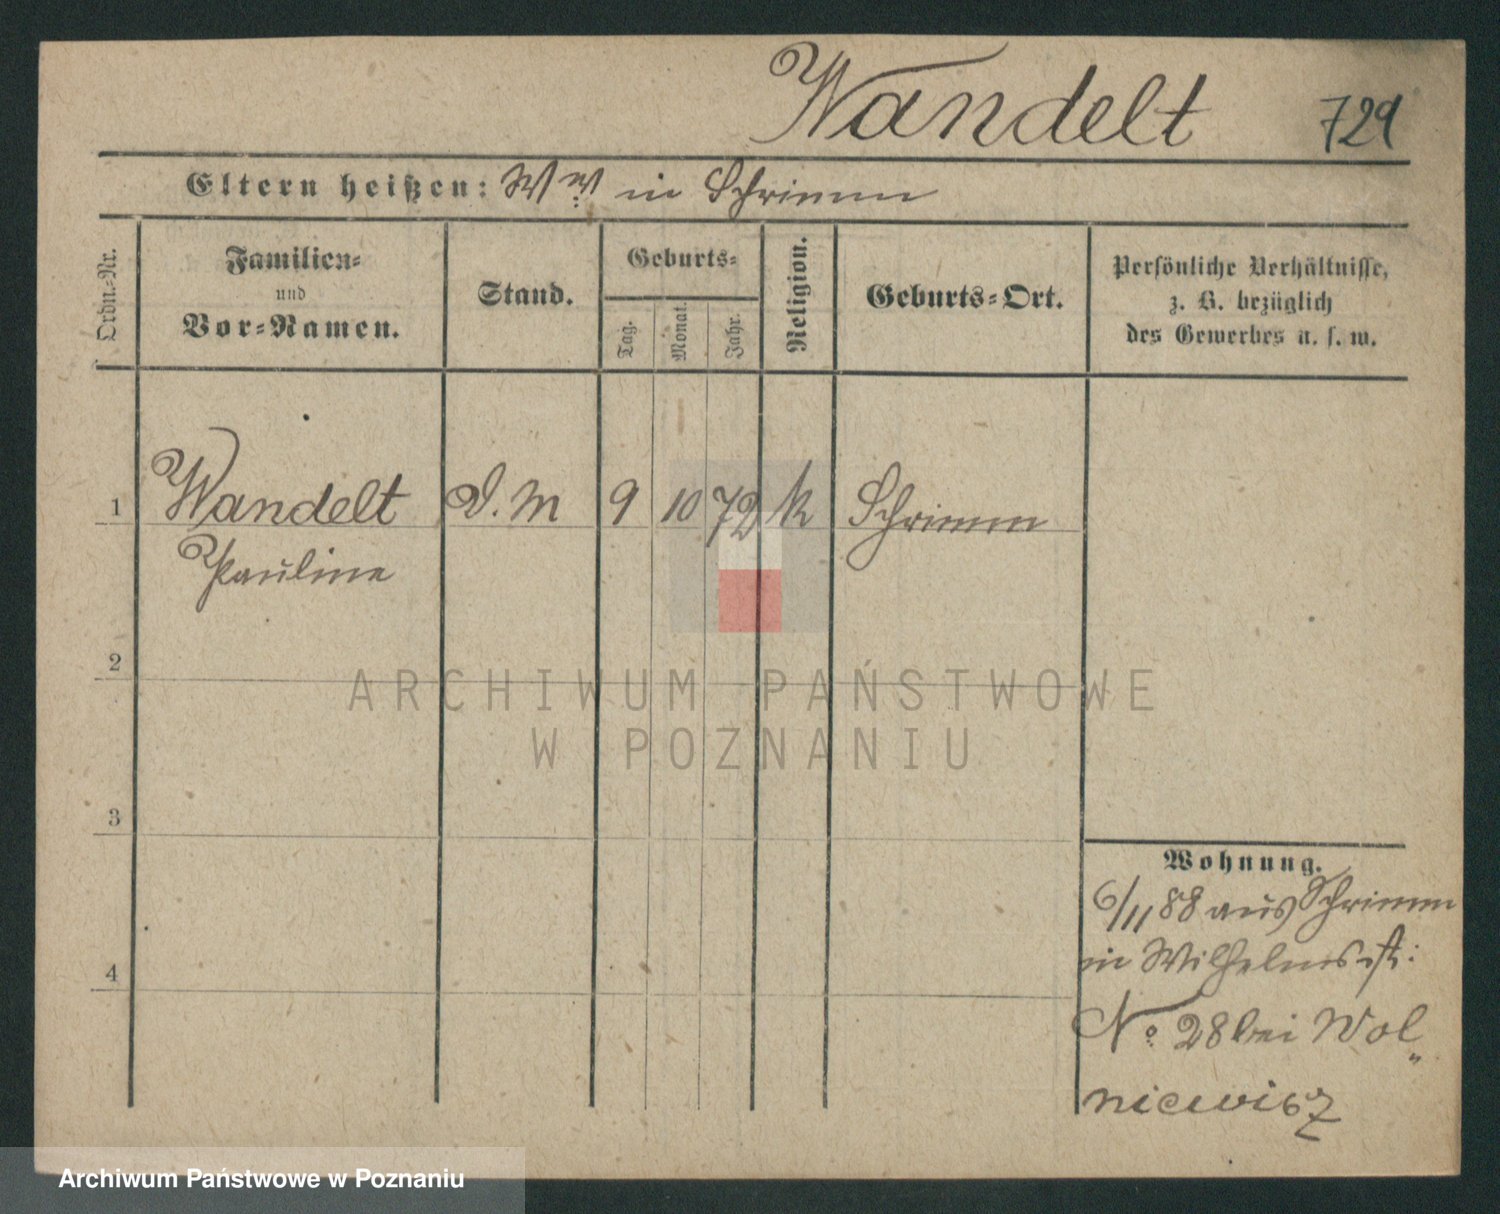 Wandelt 729
Eltern heißen: Ww in Schrimm
Ordn.-Nr.
Familien-
und
Vor-Namen.
Stand.
Geburts-
Tag. Monat. Jahr.
Religion.
Geburts-Ort.
Persönliche Verhältnisse,
z. B. bezüglich
des Gewerbes u. s. w.
1 Wandelt D. M 9 10 72 k Schrimm
Pauline
2
ARCHIWUM PAŃSTWOWE
W POZNANIU
3
Wohnung.
6/11 88 aus Schrimm
in Wilhelmsst:
4
No 28 bei Wol„
niewicz
Archiwum Państwowe w Poznaniu